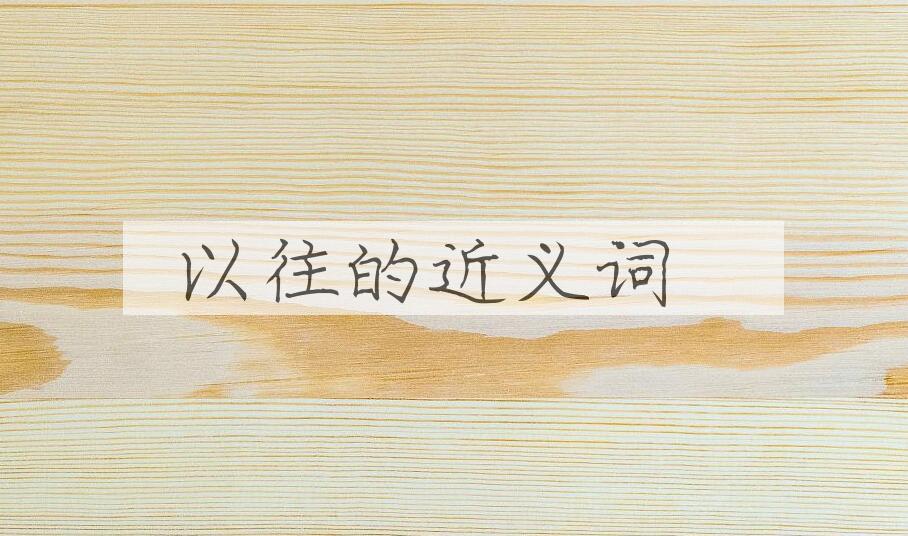 以往的近义词